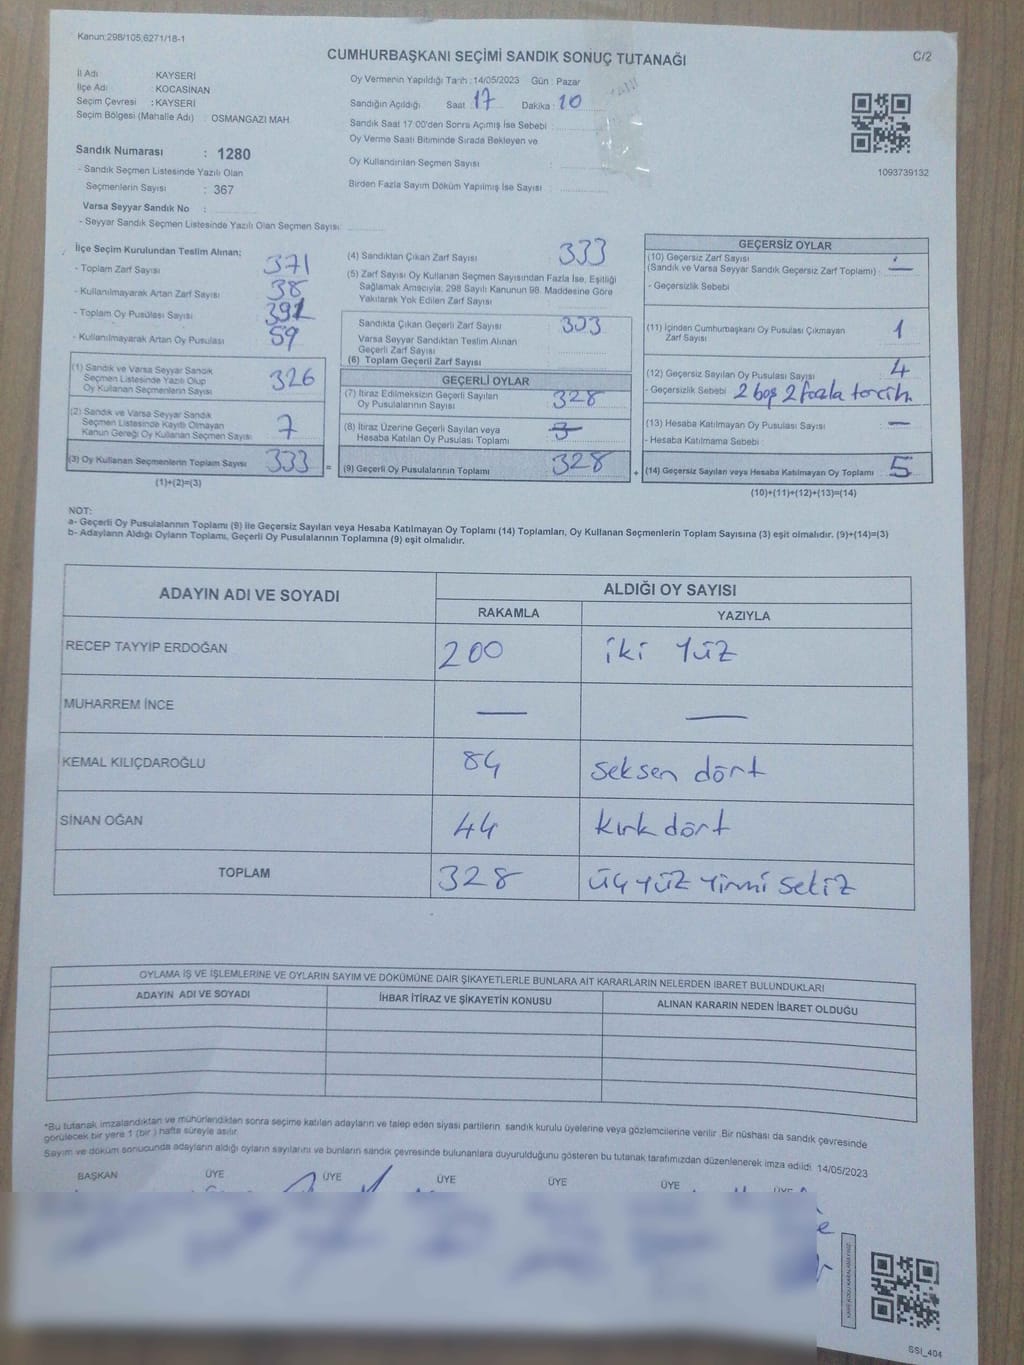 Kanun:298/105,6271/18-1
CUMHURBAŞKANI SEÇİMİ SANDIK SONUÇ TUTANAĞI
C/2
İl Adı KAYSERİ
İlçe Adı KOCASİNAN
Seçim Çevresi : KAYSERİ
Seçim Bölgesi (Mahalle Adı) : OSMANGAZI MAH.
Oy Vermenin Yapıldığı Tarih : 14/05/2023 Gün : Pazar
Sandığın Açıldığı Saat 17 Dakika : 10
Sandık Saat 17:00'den Sonra Açımış İse Sebebi :
Oy Verme Saati Bitiminde Sırada Bekleyen ve
Oy Kullandırılan Seçmen Sayısı :
Birden Fazla Sayım Döküm Yapılmış İse Sayısı :
1093739132
Sandık Numarası : 1280
- Sandık Seçmen Listesinde Yazılı Olan
Seçmenlerin Sayısı : 367
Varsa Seyyar Sandık No :
- Seyyar Sandık Seçmen Listesinde Yazılı Olan Seçmen Sayısı:
İlçe Seçim Kurulundan Teslim Alınan:
- Toplam Zarf Sayısı 371
- Kullanılmayarak Artan Zarf Sayısı 38
- Toplam Oy Pusulası Sayısı
- Kullanılmayarak Artan Oy Pusulası 59
(1) Sandık ve Varsa Seyyar Sandık
Seçmen Listesinde Yazılı Olup
Oy Kullanan Seçmenlerin Sayısı 326
(2) Sandık ve Varsa Seyyar Sandık
Seçmen Listesinde Kayıtlı Olmayan
Kanun Gereği Oy Kullanan Seçmen Sayısı 7
(3) Oy Kullanan Seçmenlerin Toplam Sayısı 333 =
(1)+(2)=(3)
(4) Sandıktan Çıkan Zarf Sayısı 333
(5) Zarf Sayısı Oy Kullanan Seçmen Sayısından Fazla İse, Eşitliği
Sağlamak Amacıyla, 298 Sayılı Kanunun 98. Maddesine Göre
Yakılarak Yok Edilen Zarf Sayısı
Sandıkta Çıkan Geçerli Zarf Sayısı 333
Varsa Seyyar Sandıktan Teslim Alınan
Geçerli Zarf Sayısı
(6) Toplam Geçerli Zarf Sayısı
GEÇERLİ OYLAR
(7) İtiraz Edilmeksizin Geçerli Sayılan
Oy Pusulalarının Sayısı 328
(8) İtiraz Üzerine Geçerli Sayılan veya
Hesaba Katılan Oy Pusulası Toplamı
(9) Geçerli Oy Pusulalarının Toplamı 328 +
GEÇERSİZ OYLAR
(10) Geçersiz Zarf Sayısı
(Sandık ve Varsa Seyyar Sandık Geçersiz Zarf Toplamı) : —
- Geçersizlik Sebebi :
(11) İçinden Cumhurbaşkanı Oy Pusulası Çıkmayan
Zarf Sayısı 1
(12) Geçersiz Sayılan Oy Pusulası Sayısı 4
- Geçersizlik Sebebi : 2 boş 2 fazla tercih
(13) Hesaba Katılmayan Oy Pusulası Sayısı : —
- Hesaba Katılmama Sebebi :
(14) Geçersiz Sayılan veya Hesaba Katılmayan Oy Toplamı 5
(10)+(11)+(12)+(13)=(14)
NOT:
a- Geçerli Oy Pusulalarının Toplamı (9) ile Geçersiz Sayılan veya Hesaba Katılmayan Oy Toplamı (14) Toplamları, Oy Kullanan Seçmenlerin Toplam Sayısına (3) eşit olmalıdır. (9)+(14)=(3)
b- Adayların Aldığı Oyların Toplamı, Geçerli Oy Pusulalarının Toplamına (9) eşit olmalıdır.
ADAYIN ADI VE SOYADI ALDIĞI OY SAYISI
RAKAMLA YAZIYLA
RECEP TAYYİP ERDOĞAN 200 iki yüz
MUHARREM İNCE — —
KEMAL KILIÇDAROĞLU 84 seksen dört
SİNAN OĞAN 44 kırk dört
TOPLAM 328 üç yüz yirmi sekiz
OYLAMA İŞ VE İŞLEMLERİNE VE OYLARIN SAYIM VE DÖKÜMÜNE DAİR ŞİKAYETLERLE BUNLARA AİT KARARLARIN NELERDEN İBARET BULUNDUKLARI
ADAYIN ADI VE SOYADI İHBAR İTİRAZ VE ŞİKAYETİN KONUSU ALINAN KARARIN NEDEN İBARET OLDUĞU
*Bu tutanak imzalandıktan ve mühürlendikten sonra seçime katılan adayların ve talep eden siyasi partilerin sandık kurulu üyelerine veya gözlemcilerine verilir. Bir nüshası da sandık çevresinde
görülecek bir yere 1 (bir) hafta süreyle asılır.
Sayım ve döküm sonucunda adayların aldığı oyların sayılarını ve bunların sandık çevresinde bulunanlara duyurulduğunu gösteren bu tutanak tarafımızdan düzenlenerek imza edildi. 14/05/2023
BAŞKAN ÜYE ÜYE ÜYE ÜYE ÜYE ÜYE
SSI_404